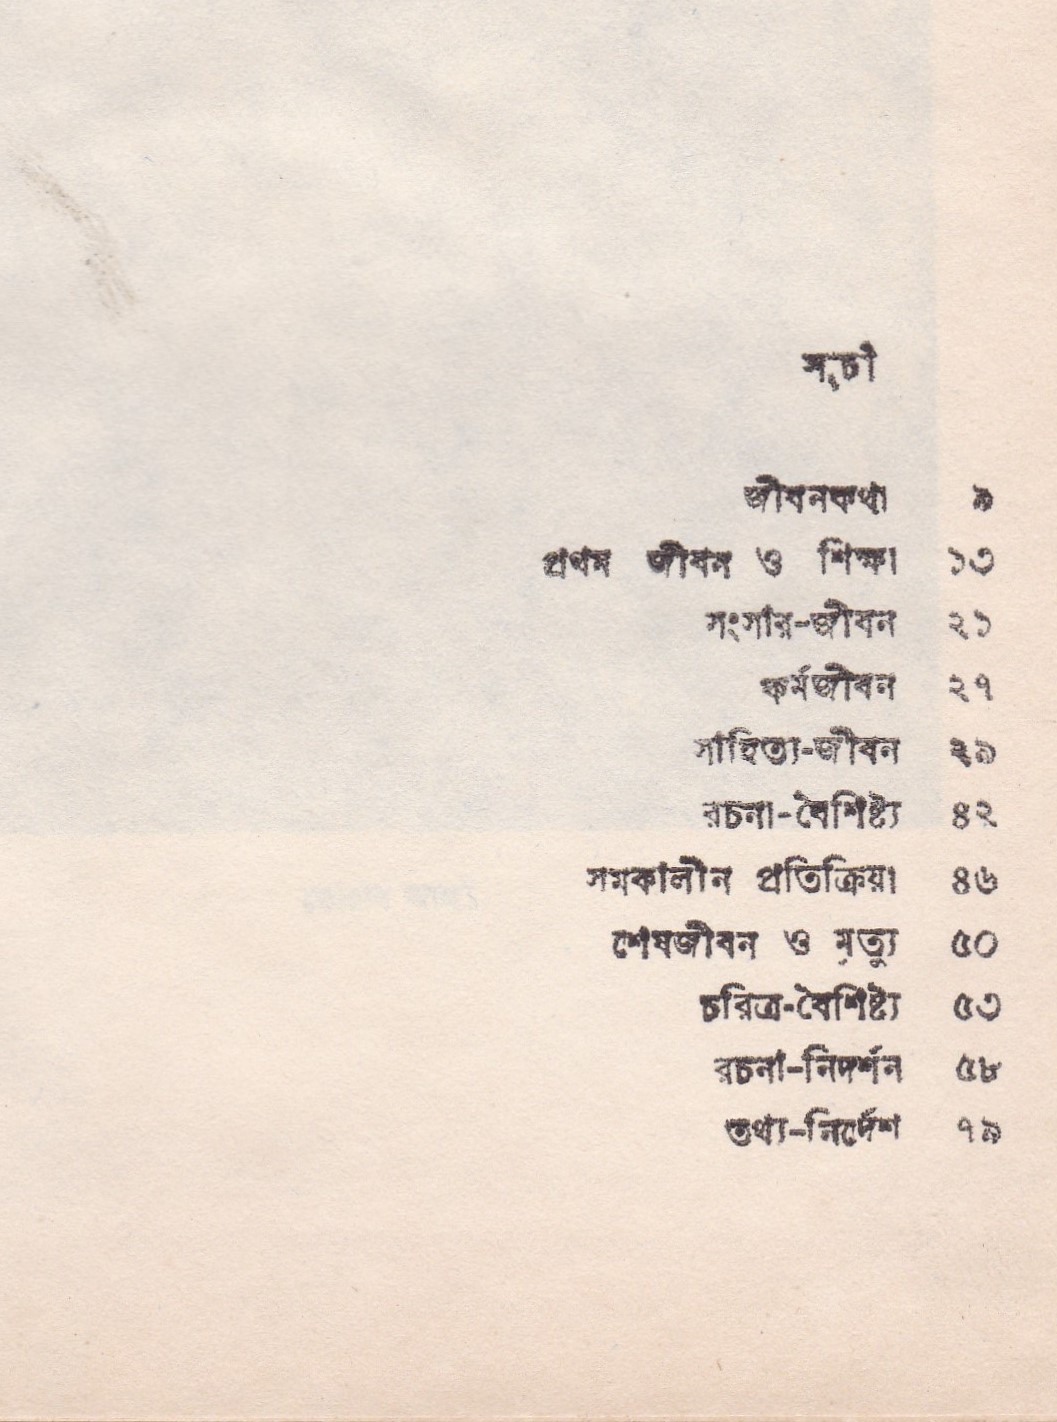 সূচী
জীবনকথা ৯
প্রথম জীবন ও শিক্ষা ১৩
সংসার-জীবন ২১
কর্মজীবন ২৭
সাহিত্য-জীবন ২৯
রচনা-বৈশিষ্ট্য ৪২
সমকালীন প্রতিক্রিয়া ৪৬
শেষজীবন ও মৃত্যু ৫০
চরিত্র-বৈশিষ্ট্য ৫৩
রচনা-নিদর্শন ৫৮
তথ্য-নির্দেশ ৭৯